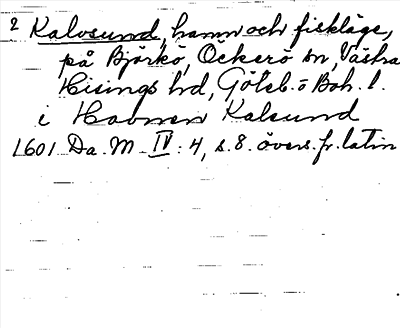 2 Kalvsund, hamn och fiskläge,
på Björkö, Öckerö sn, Västra
Hisings hd, Göteb. o Boh. l.
i Havnen Kalsund
1601 Da. M. IV: 4, s. 8. övers. fr. latin